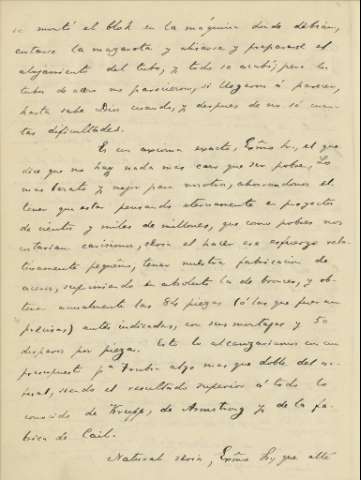 se montó el blok en la máquina donde debian,
cortarse la mazarota y abrirse y prepararse el
alojamiento del tubo, y todo se acabó; pero los
tubos de acero no parecieron, si llegaron á parecer,
hasta sabe Dios cuando, y despues de no sé cuan-
tas dificultades.
Es un axioma exacto, Exmo Sr, el que
dice que no hay nada mas caro que ser pobre. Lo
mas barato y mejor para nosotros, ahorrandonos el
tener que estar pensando eternamente en proyectos
de cientos y miles de millones, que como pobres nos
estarian carisimos, sería el hacer ese esfuerzo rela-
tivamente pequeño, tener nuestra fabricacion de
aceros, suprimiendo en absoluto la de bronces, y ob-
tener anualmente las 84 piezas (ó las que fueran
precisas) antes indicadas, con sus montajes y 50
disparos por pieza. Esto lo alcanzariamos con un
presupuesto pª Trubia algo mas que doble del
siendo el resultado superior á todo lo
conocido de Krupp, de Armstrong y de la fá-
brica de Cail.
Natural sería, Exmo Sr, que allí